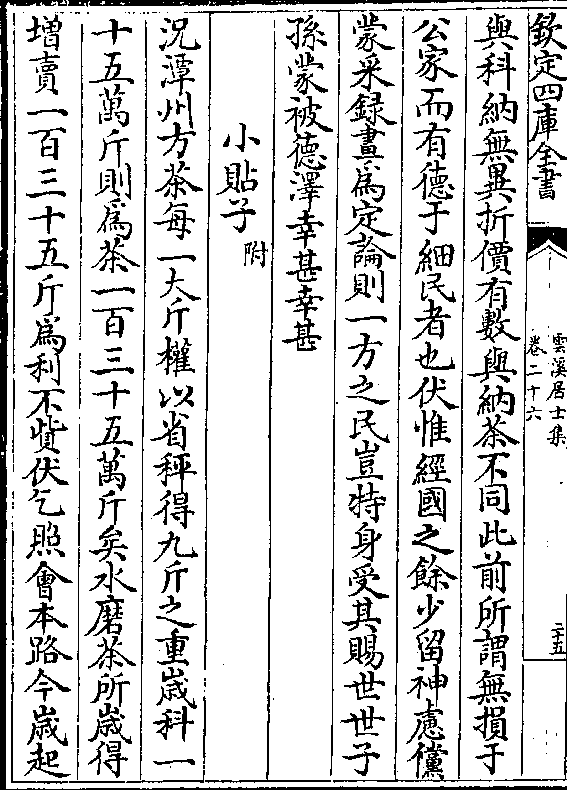 欽定四庫全書
雲溪居士集
卷二十六
二十五
與科納無異折價有數與納茶不同此前所謂無損于
公家而有德于細民者也伏惟經國之餘少留神慮儻
蒙采録晝為定論則一方之民豈特身受其賜世世子
孫蒙被德澤幸甚幸甚
小貼子附
況潭州方茶每一大斤權以省秤得九斤之重歲科一
十五萬斤則為茶一百三十五萬斤矣水磨茶所歲得
增賣一百三十五斤為利不貲伏乞照會本路今歲起